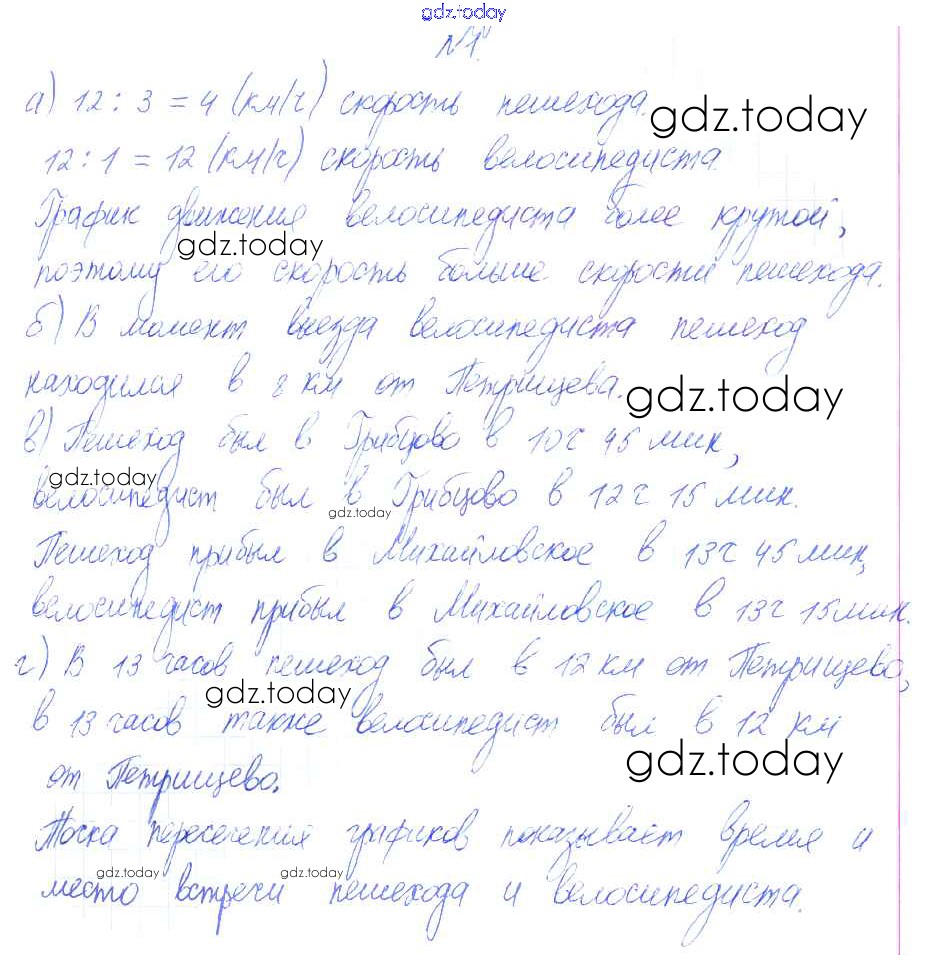 gdz.today
№ 1.
а) 12 : 3 = 4 (км/ч) скорость пешехода.
gdz.today
12 : 1 = 12 (км/ч) скорость велосипедиста.
График движения велосипедиста более крутой,
gdz.today
поэтому его скорость больше скорости пешехода.
б) В момент выезда велосипедиста пешеход
находился в 8 км от Петрищева.
gdz.today
в) Пешеход был в Грибцово в 10 ч 45 мин,
gdz.today
велосипедист был в Грибцово в 12 ч 15 мин.
gdz.today
Пешеход прибыл в Михайловское в 13 ч 45 мин,
велосипедист прибыл в Михайловское в 13 ч 15 мин.
г) В 13 часов пешеход был в 12 км от Петрищево,
gdz.today
в 13 часов также велосипедист был в 12 км
gdz.today
от Петрищево.
Точка пересечения графиков показывает время и
gdz.today gdz.today
место встречи пешехода и велосипедиста.
gdz.today